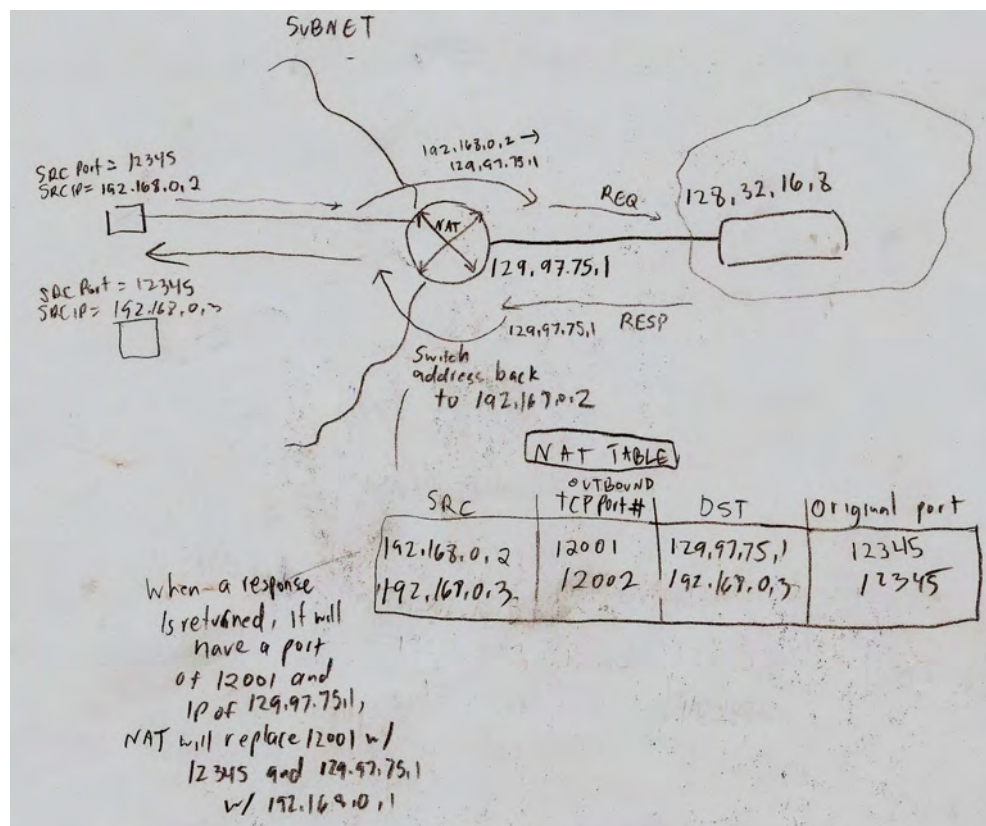 SUBNET
192.168.0.2 →
129.97.75.1
SRC Port = 12345
SRC IP = 192.168.0.2
REQ
128.32.16.8
NAT
129.97.75.1
SRC Port = 12345
SRC IP = 192.168.0.3
129.97.75.1
RESP
Switch
address back
to 192.168.0.2
NAT TABLE
SRC | OUTBOUND TCP Port# | DST | Original port
192.168.0.2 | 12001 | 129.97.75.1 | 12345
192.168.0.3 | 12002 | 192.168.0.3 | 12345
When a response
is returned, it will
have a port
of 12001 and
IP of 129.97.75.1,
NAT will replace 12001 w/
12345 and 129.97.75.1
w/ 192.168.0.1